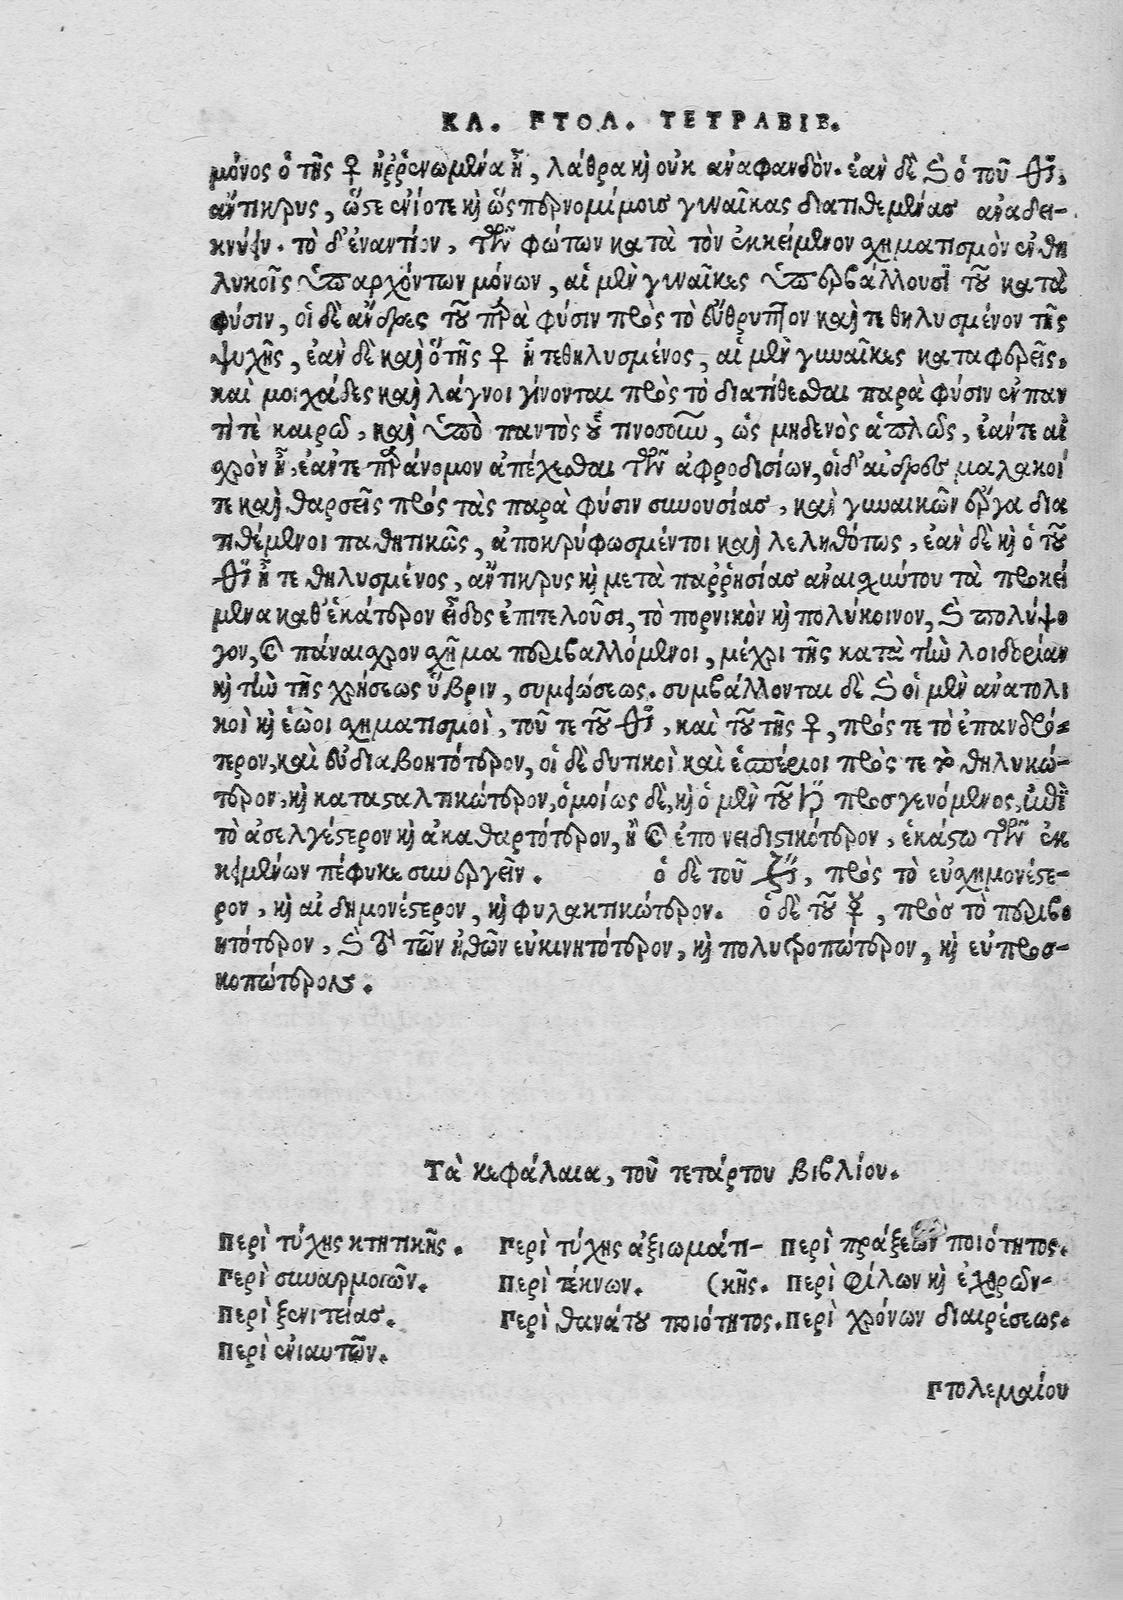 ΚΛ. ΠΤΟΛ. ΤΕΤΡΑΒΙΒ.
μόνος ὁ τῆς ♀ ἠῤῥενωμένα ᾖ, λάθρα καὶ οὐκ ἀναφανδὸν. ἐὰν δὲ καὶ ὁ τοῦ ♂,
ἄντικρυς, ὥστε ἐνίοτε καὶ ὡς πορνομίμοις γυναῖκας διατιθεμένας ἀναδει-
κνύειν. τὸ δ' ἐναντίον, τῶν φώτων κατὰ τὸν ἐκκείμενον σχηματισμὸν ἐν θη
λυκοῖς ὑπαρχόντων μόνων, αἱ μὲν γυναῖκες ὑπερβάλλουσι τοῦ κατὰ
φύσιν, οἱ δὲ ἄνδρες τοῦ παρὰ φύσιν πρὸς τὸ εὔθρυπτον καὶ τεθηλυσμένον τῆς
ψυχῆς, ἐὰν δὲ καὶ ὁ τῆς ♀ ᾖ τεθηλυσμένος, αἱ μὲν γυναῖκες καταφερεῖς.
καὶ μοιχάδες καὶ λάγνοι γίνονται πρὸς τὸ διατίθεσθαι παρὰ φύσιν ἐν παν
τί τὲ καιρῷ, καὶ ὑπὸ παντὸς οὗ τινοσοῦν, ὡς μηδενὸς ἁπλῶς, ἐάντε αἰ
σχρὸν ᾖ, ἐάντε παράνομον ἀπέχεσθαι τῶν ἀφροδισίων, οἱ δ' ἄνδρες μαλακοί
τε καὶ θαρσεῖς πρός τὰς παρὰ φύσιν συνουσίας, καὶ γυναικῶν ἔργα δια
τιθέμενοι παθητικῶς, ἀποκρύφως μέντοι καὶ λεληθότως, ἐὰν δὲ καὶ ὁ τοῦ
♂ ᾖ τεθηλυσμένος, ἄντικρυς καὶ μετὰ παῤῥησίας ἀναισχύντου τὰ προκεί
μενα καθ' ἑκάτερον εἶδος ἐπιτελοῦσι, τὸ πορνικὸν καὶ πολύκοινον, καὶ πολύψο
γον, καὶ πάναισχρον σχῆμα περιβαλλόμενοι, μέχρι τῆς κατὰ τὴν λοιδορίαν
καὶ τὴν τῆς χρήσεως ὕβριν, συμφώσεως. συμβάλλονται δὲ καὶ οἱ μὲν ἀνατολι
κοὶ καὶ ἑῶοι σχηματισμοὶ, τοῦ τε τοῦ ♂, καὶ τοῦ τῆς ♀, πρός τε τὸ ἐπανδρό-
τερον, καὶ εὐδιαβοητότερον, οἱ δὲ δυτικοὶ καὶ ἑσπέριοι πρὸς τε τὸ θηλυκώ-
τερον, καὶ κατασταλτικώτερον, ὁμοίως δὲ, καὶ ὁ μὲν τοῦ ♄ προσγενόμενος, ἐπὶ
τὸ ἀσελγέστερον καὶ ἀκαθαρτότερον, ἢ καὶ ἐπονειδιστικότερον, ἑκάστῳ τῶν ἐκ
κειμένων πέφυκε συνεργεῖν. ὁ δὲ τοῦ ♃, πρὸς τὸ εὐσχημονέστε-
ρον, καὶ αἰδημονέστερον, καὶ φυλακτικώτερον. ὁ δὲ τοῦ ☿, πρὸς τὸ περιβο
ητότερον, καὶ τὸ τῶν ἠθῶν εὐκινητότερον, καὶ πολυτροπώτερον, καὶ εὐπροσ-
κοπώτερον.
Τὰ κεφάλαια, τοῦ τετάρτου βιβλίου.
Περὶ τύχης κτητικῆς. Περὶ τύχης ἀξιωμάτι- Περὶ πράξεων ποιότητος.
Περὶ συναρμογῶν. Περὶ τέκνων. (κῆς. Περὶ φίλων καὶ ἐχθρῶν-
Περὶ ξενιτείας. Περὶ θανάτου ποιότητος. Περὶ χρόνων διαιρέσεως.
Περὶ ἐνιαυτῶν.
Πτολεμαίου